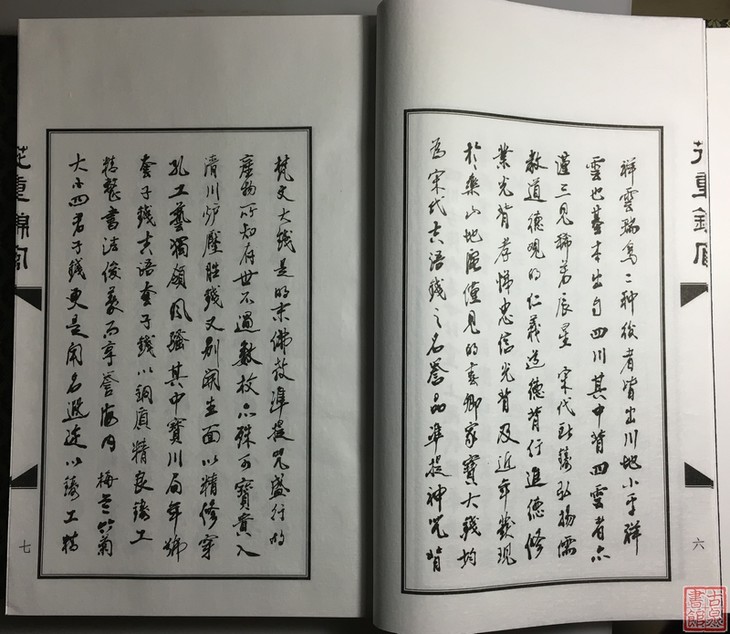 祥雲瑞鳥二种後者皆出川地小于祥
雲也基本出自四川其中背四雲者亦
僅三見稀若辰星宋代所鑄弘揚儒
教道德觀的仁義道德背行進德修
業光背孝悌忠信光背及近年發現
於樂山地區僅見的喜卿家寶大錢均
為宋代吉語錢之名譽品準提神咒背
六
梵文大錢是明末佛教準提咒盛行的
產物所知存世不過數枚亦殊可寶貴入
清川炉壓胜錢又别開生面以精修穿
孔工藝獨領風騷其中寶川局年號
套子錢吉语套子錢以銅質精良鑄工
精整書法俊美而享譽海内梅兰竹菊
大小四君子錢更是闻名遐迩以鑄工精
七
花重錦官
花重錦官
古泉書館